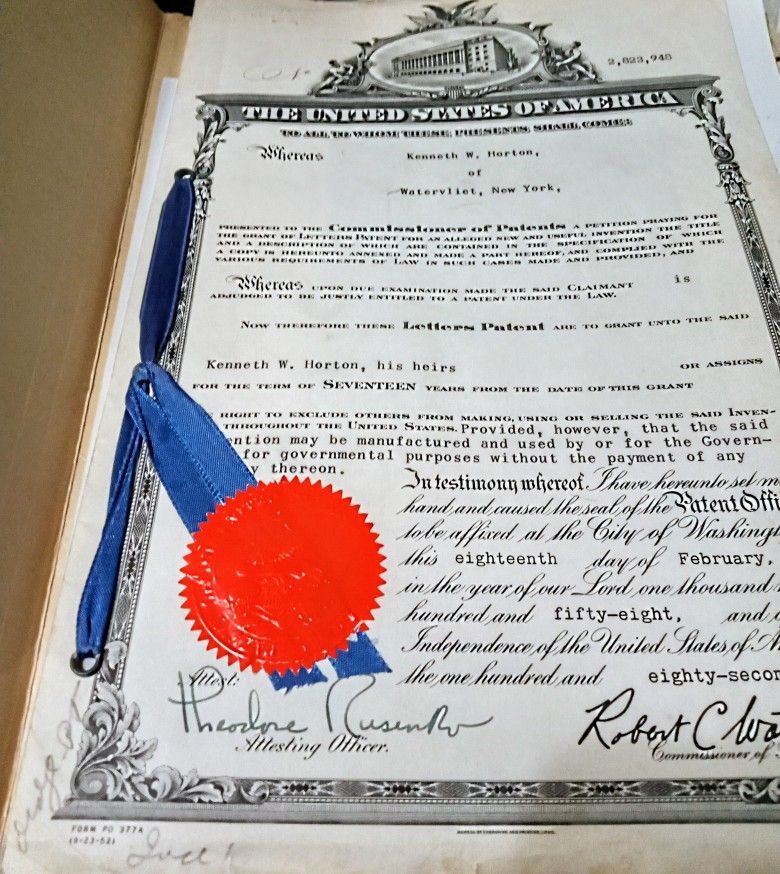 2,823,948
THE UNITED STATES OF AMERICA
TO ALL TO WHOM THESE PRESENTS SHALL COME:
Whereas Kenneth W. Horton,
of
Watervliet, New York,
PRESENTED TO THE Commissioner of Patents A PETITION PRAYING FOR
THE GRANT OF LETTERS PATENT FOR AN ALLEGED NEW AND USEFUL INVENTION THE TITLE
AND A DESCRIPTION OF WHICH ARE CONTAINED IN THE SPECIFICATION OF WHICH
A COPY IS HEREUNTO ANNEXED AND MADE A PART HEREOF, AND COMPLIED WITH THE
VARIOUS REQUIREMENTS OF LAW IN SUCH CASES MADE AND PROVIDED, AND
Whereas UPON DUE EXAMINATION MADE THE SAID CLAIMANT is
ADJUDGED TO BE JUSTLY ENTITLED TO A PATENT UNDER THE LAW.
NOW THEREFORE THESE Letters Patent ARE TO GRANT UNTO THE SAID
Kenneth W. Horton, his heirs OR ASSIGNS
FOR THE TERM OF SEVENTEEN YEARS FROM THE DATE OF THIS GRANT
RIGHT TO EXCLUDE OTHERS FROM MAKING, USING OR SELLING THE SAID INVEN-
THROUGHOUT THE UNITED STATES. Provided, however, that the said
ention may be manufactured and used by or for the Govern-
for governmental purposes without the payment of any
y thereon.
In testimony whereof, I have hereunto set m
hand and caused the seal of the Patent Offi
to be affixed at the City of Washing
this eighteenth day of February,
in the year of our Lord one thousand
hundred and fifty-eight, and o
Independence of the United States of
the one hundred and eighty-secon
Attest:
Theodore
Attesting Officer.
Robert C Wa
Commissioner of
FORM PO 377A
(9-23-52)